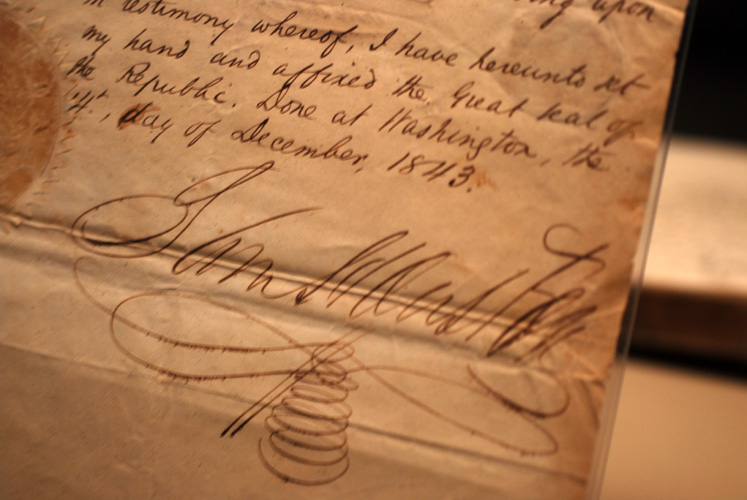 ing upon
in testimony whereof, I have hereunto set
my hand and affixed the Great Seal of
the Republic. Done at Washington, the
4th, day of December, 1843.
Sam Houston